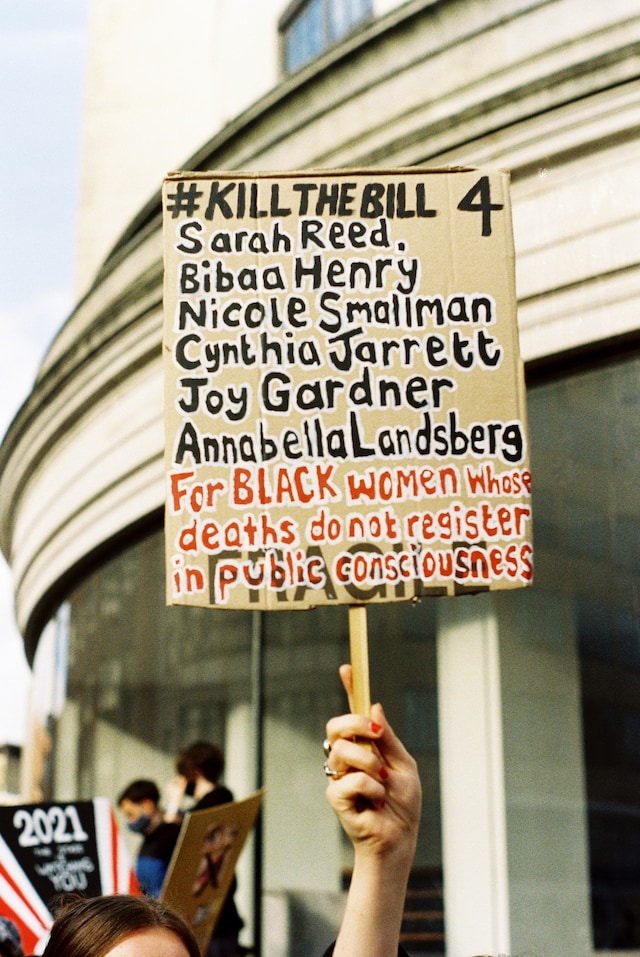 #KILLTHEBILL 4
Sarah Reed.
Bibaa Henry
Nicole Smallman
Cynthia Jarrett
Joy Gardner
Annabella Landsberg
For BLACK WOMEN whose
deaths do not register
in public consciousness
FRAGILE
2021
WATCHING
YOU